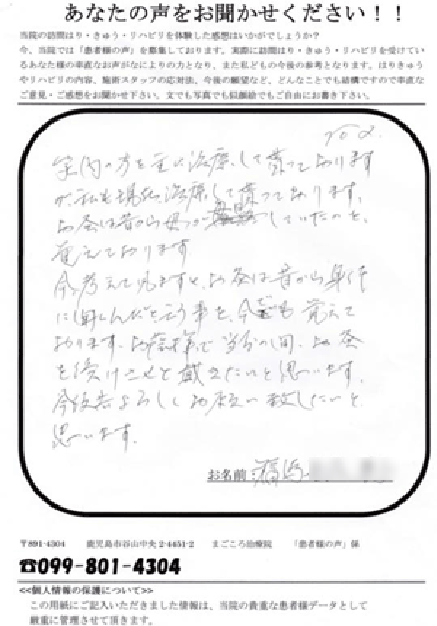 あなたの声をお聞かせください！！
当院の訪問はり・きゅう・リハビリを体験した感想はいかがでしょうか？
今、当院では「患者様の声」を募集しております。実際に訪問はり・きゅう・リハビリを受けてい
るあなた様の率直なお声がなによりの力となり、また私どもの今後の参考となります。はりきゅう
やリハビリの内容、施術スタッフの応対法、今後の願望など、どんなことでも結構ですので率直な
ご意見・ご感想をお聞かせ下さい。文でも写真でも似顔絵でもご自由にお書き下さい。
の方を主に治療して貰っております
が私も現在治療して貰っております。
お灸は昔から母が していたのを、
覚えております
今考えて見ますと、お灸は昔から身体
に と言う事を、今でも覚えて
おります。お で当分の間、お灸
を続けさせて戴きたいと思います。
今後共よろしくお願い致したいと
思います。
お名前
〒891-4304 鹿児島市谷山中央2-4451-2 まごころ治療院 「患者様の声」係
☎099-801-4304
<<個人情報の保護について>>
この用紙にご記入いただきました情報は、当院の貴重な患者様データとして
厳重に管理させて頂きます。